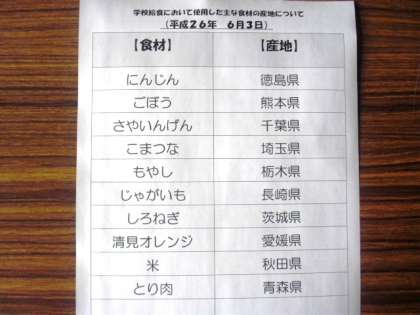 学校給食において使用した主な食材の産地について
（平成２６年　６月３日）
【食材】　【産地】
にんじん　徳島県
ごぼう　熊本県
さやいんげん　千葉県
こまつな　埼玉県
もやし　栃木県
じゃがいも　長崎県
しろねぎ　茨城県
清見オレンジ　愛媛県
米　秋田県
とり肉　青森県